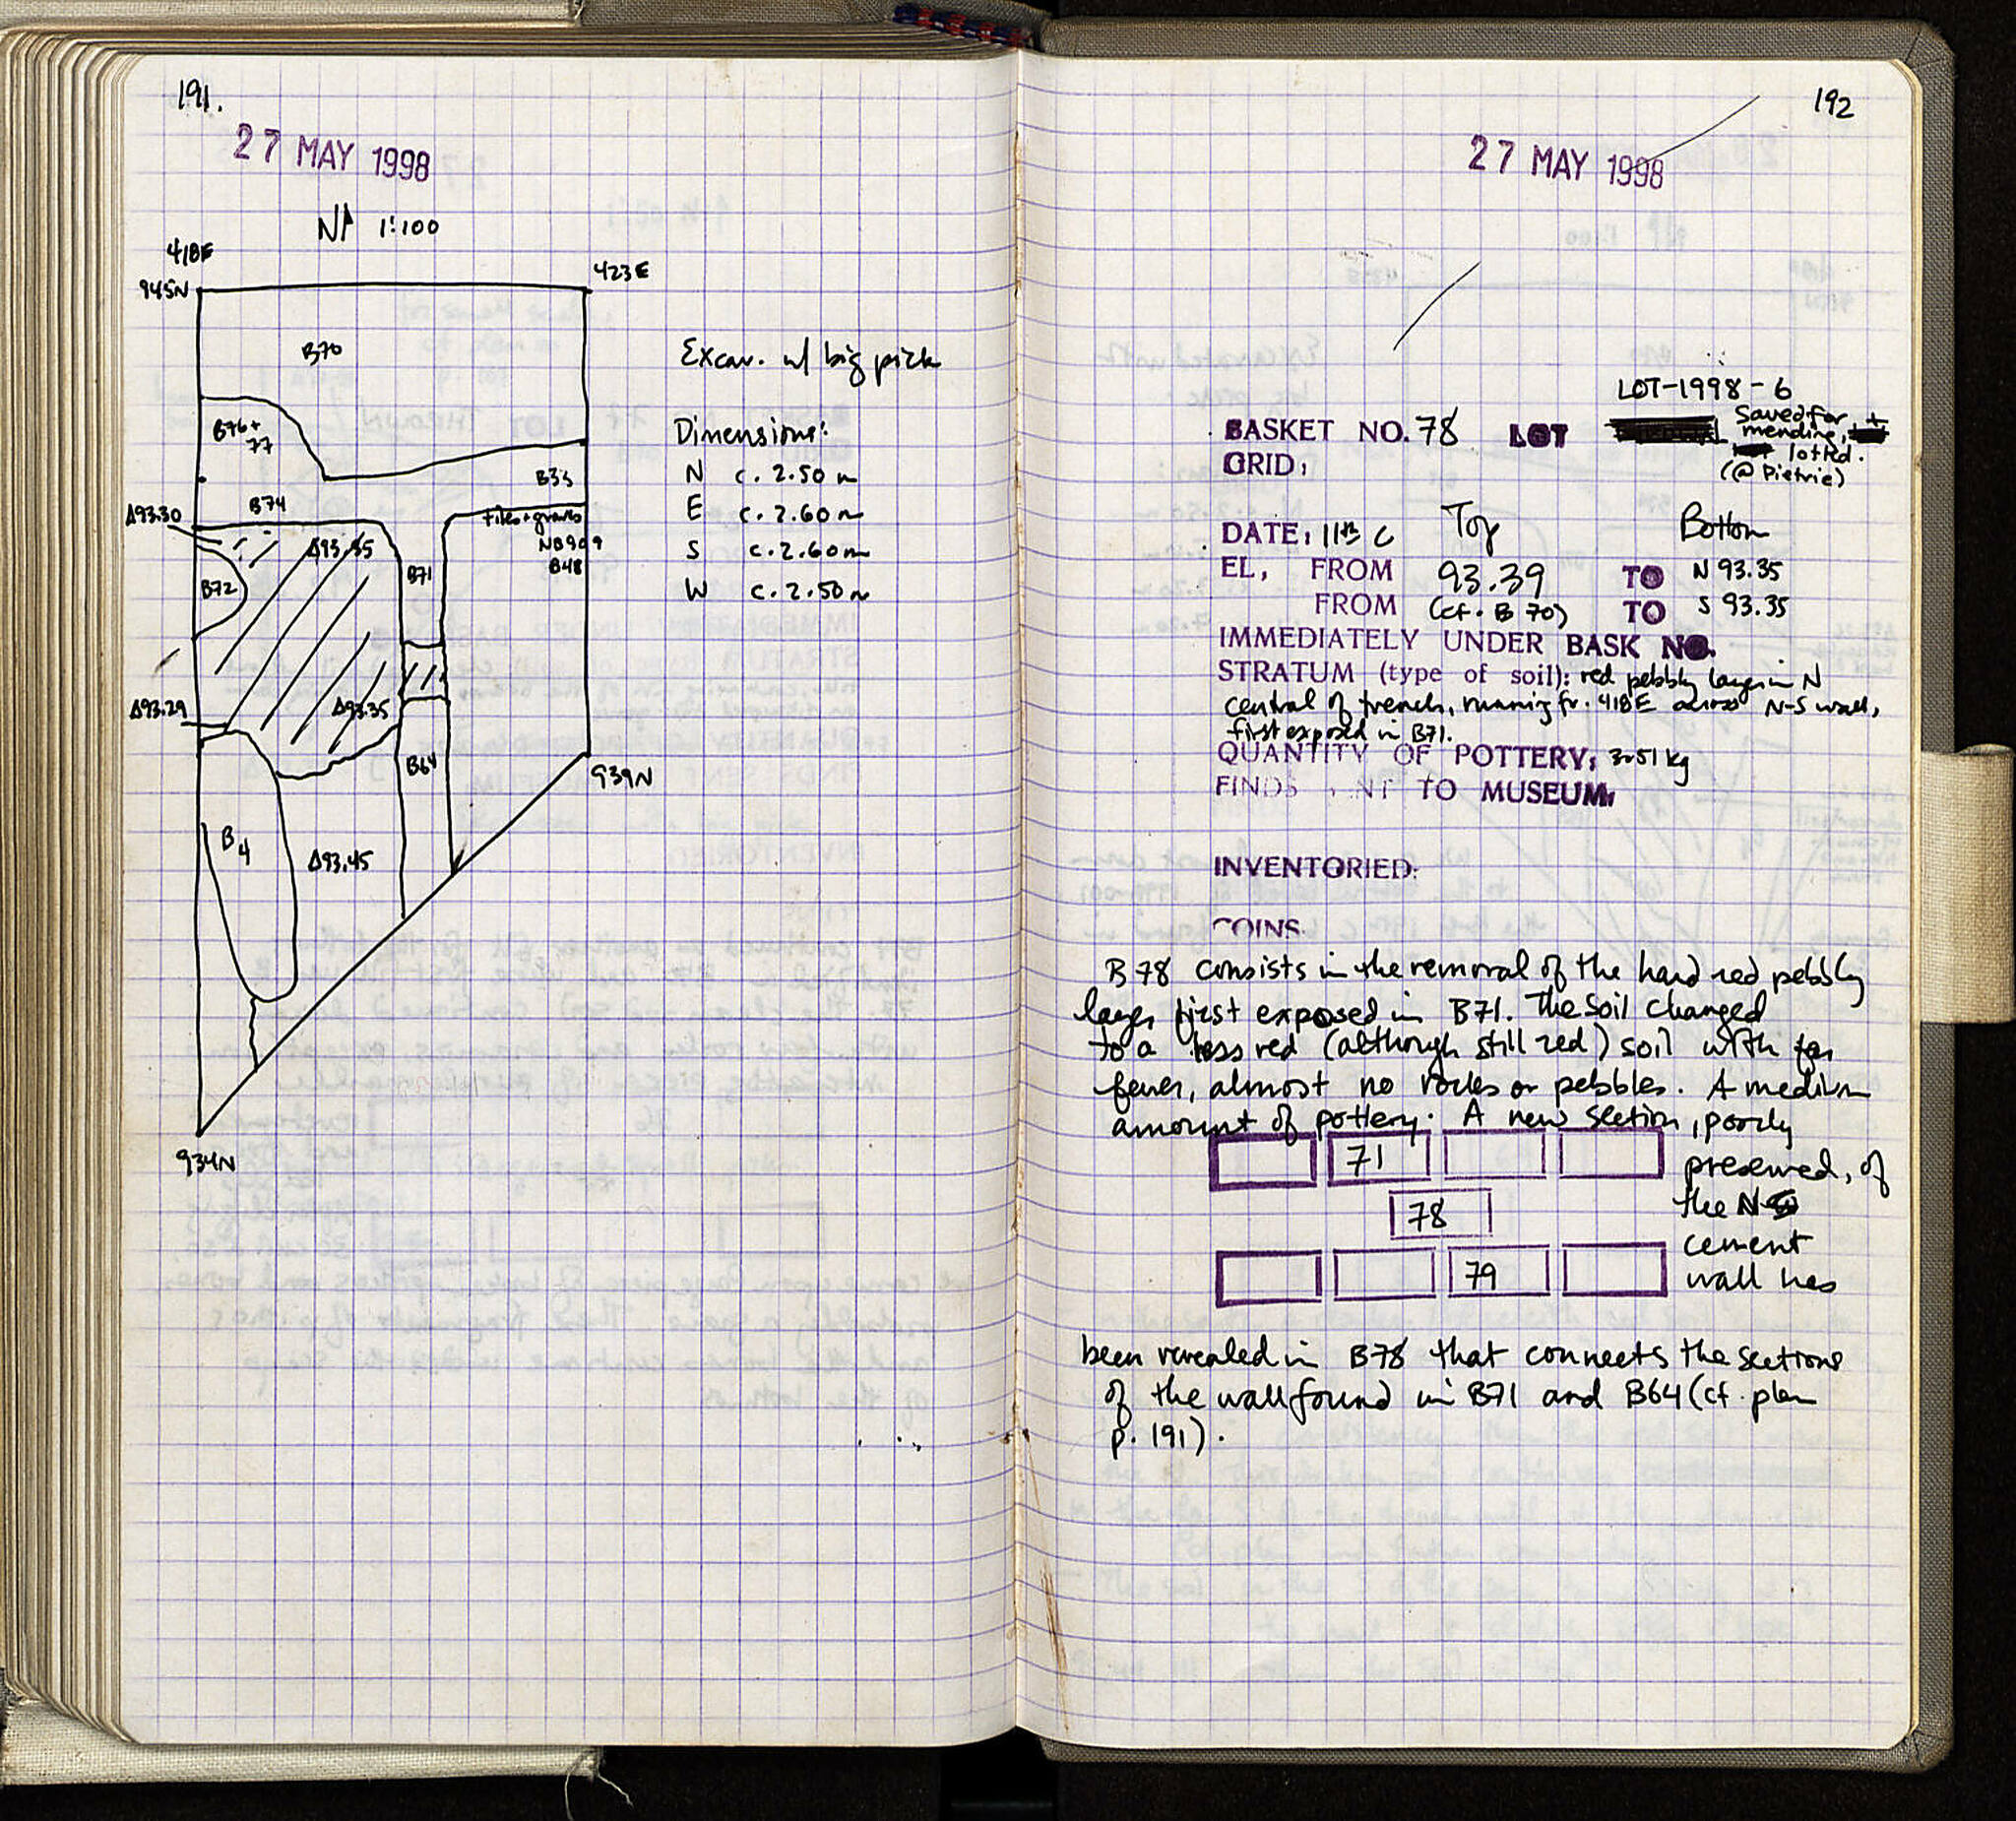 191.
27 MAY 1998
N 1:100
418E
423E
945N
B70
B76+
77
B33
B74
Δ93.30
tiles+gravels
NB909
B48
Δ93.35
B71
B72
Δ93.29
Δ93.35
B64
939N
B4
Δ93.45
934N
Excav. w/ big pick
Dimensions:
N c. 2.50 m
E c. 2.60 m
S c. 2.60 m
W c. 2.50 m
192
27 MAY 1998
LOT-1998-6
BASKET NO. 78 LOT
Saved for
mending, +
lot Rd.
(@ Pietrie)
GRID:
Top Bottom
DATE: 11th C
EL, FROM 93.39 TO N 93.35
FROM (cf. B 70) TO S 93.35
IMMEDIATELY UNDER BASK NO.
STRATUM (type of soil): red pebbly layer in N
central of trench, running fr. 418E across N-S wall,
first exposed in B71.
QUANTITY OF POTTERY: 3.51 kg
FINDS NT TO MUSEUM:
INVENTORIED:
COINS:
B78 consists in the removal of the hard red pebbly
layer first exposed in B71. The soil changed
to a less red (although still red) soil with far
fewer, almost no rocks or pebbles. A medium
amount of pottery. A new section, poorly
preserved, of
the N-S
cement
wall has
71
78
79
been revealed in B78 that connects the sections
of the wall found in B71 and B64 (cf. plan
p. 191).